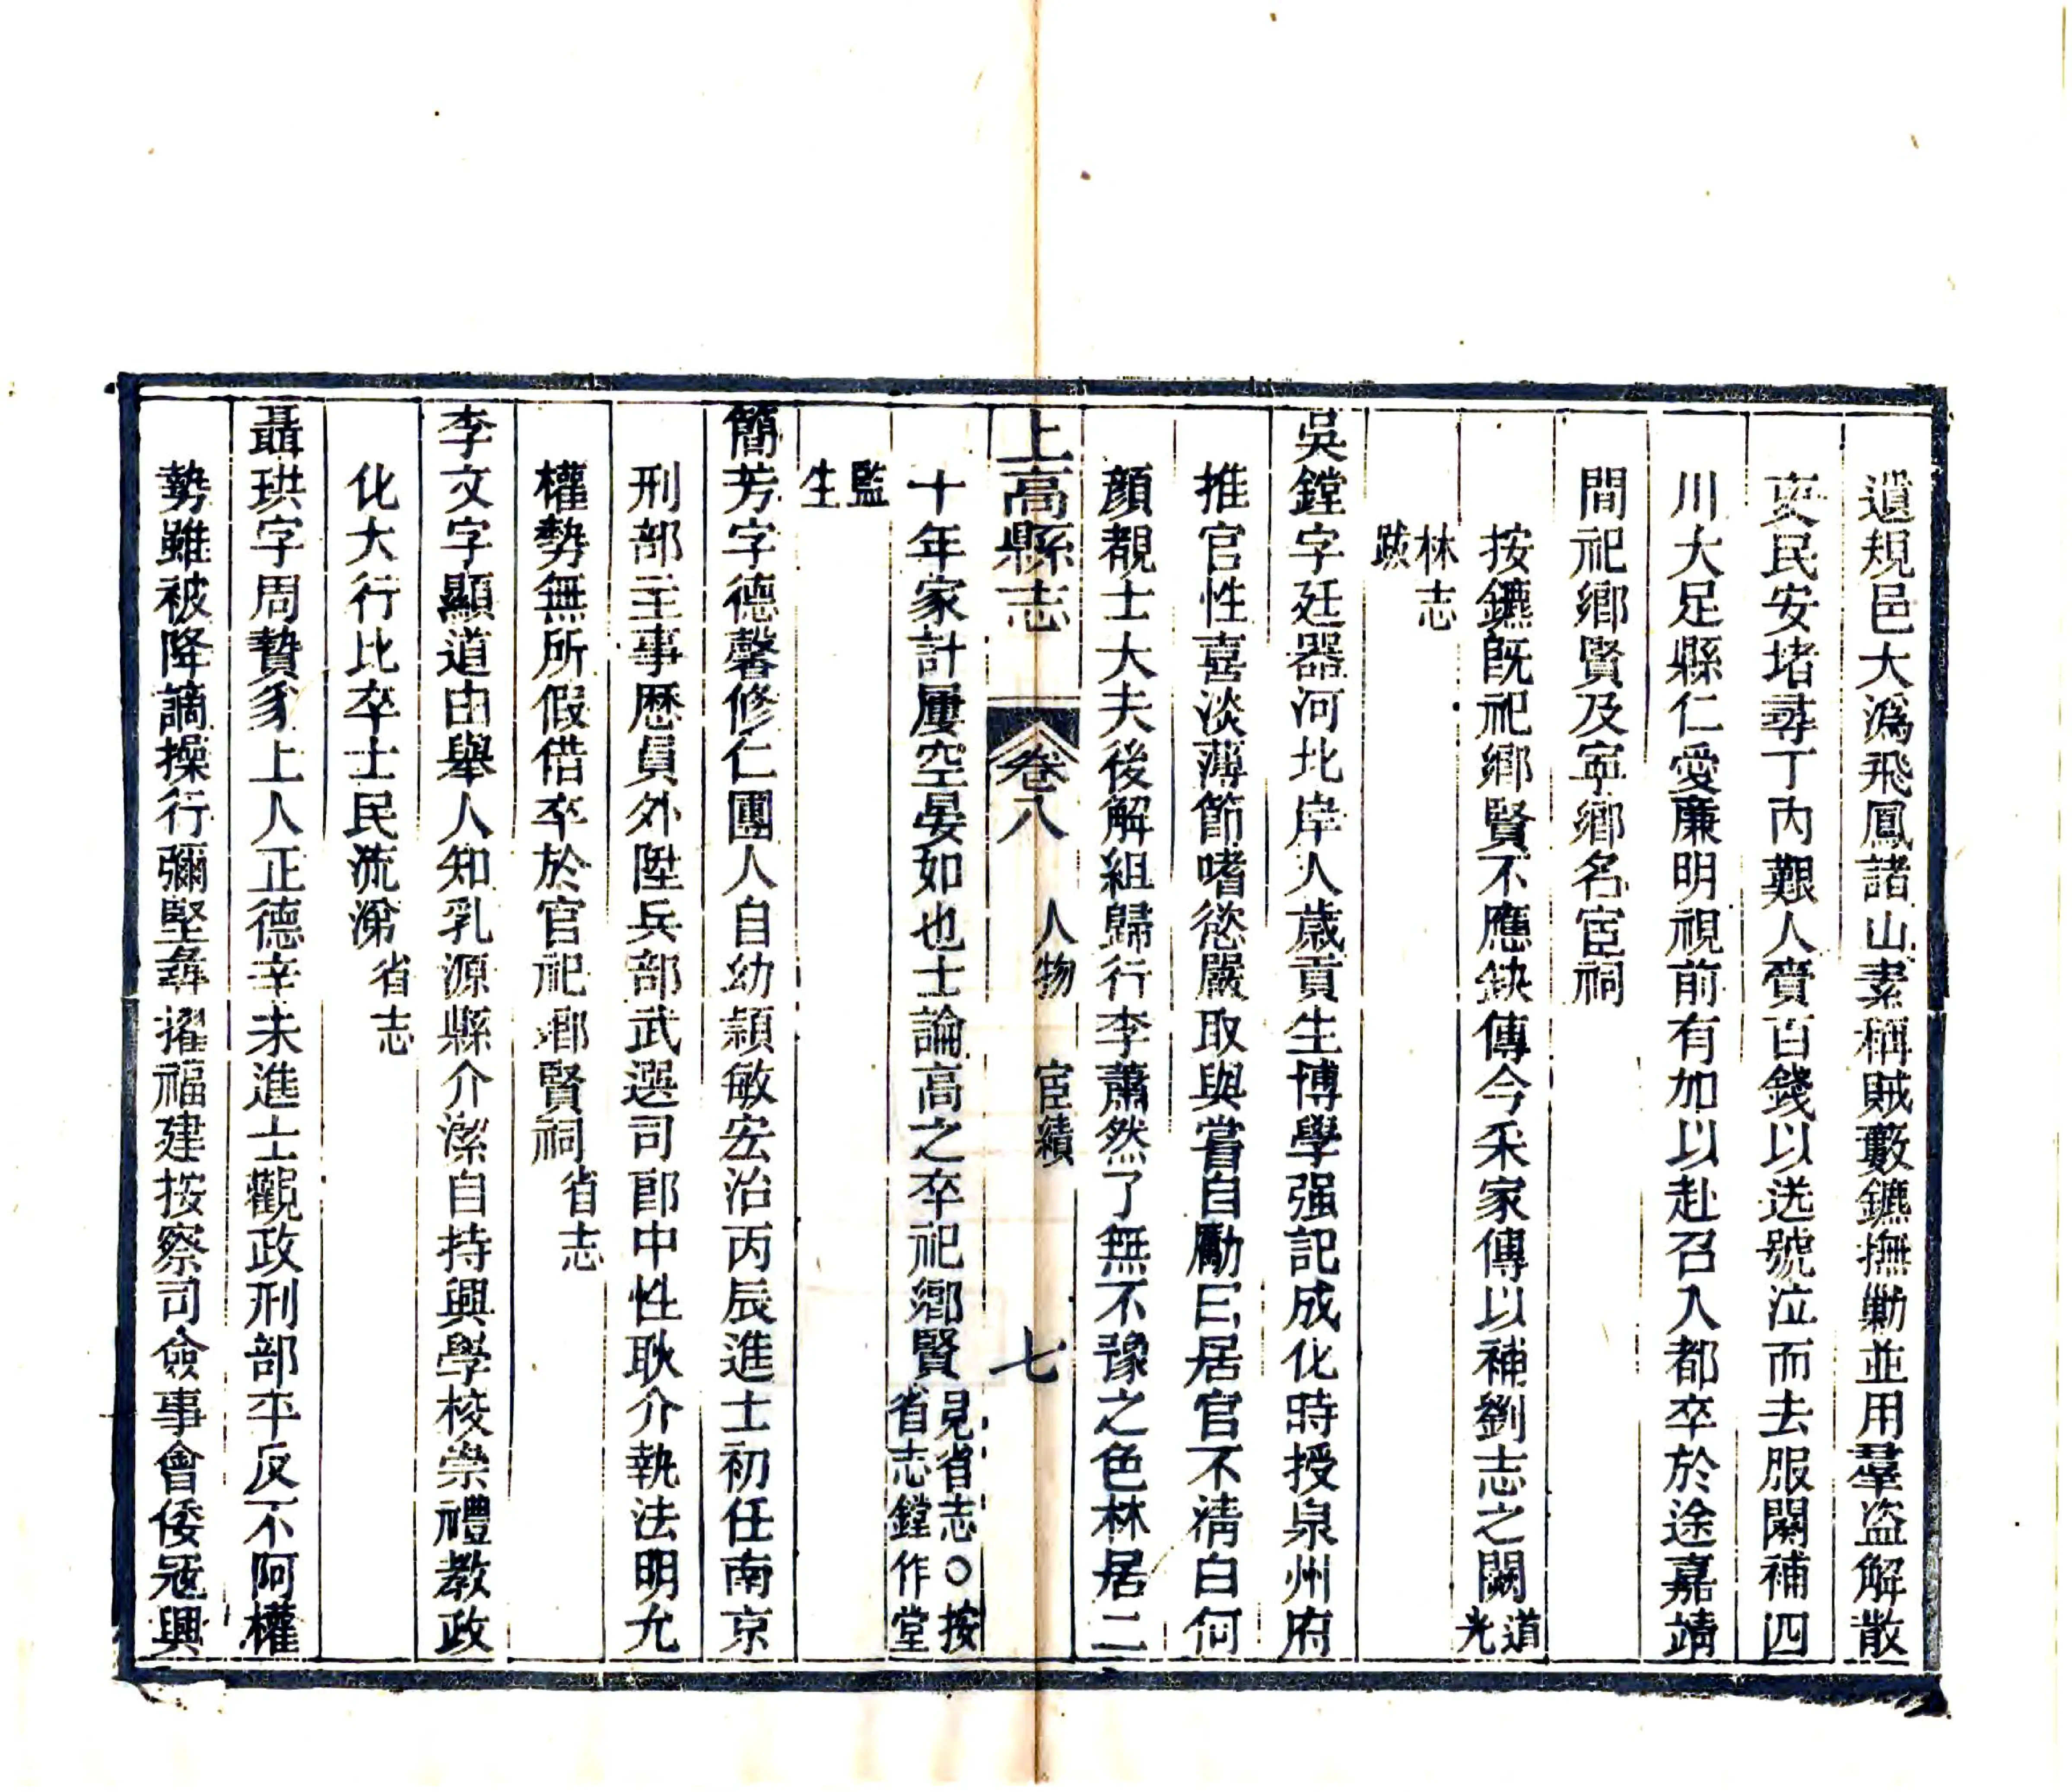 遺規邑大溈飛鳳諸山素稱賊藪鑣撫勦並用羣盜解散
吏民安堵尋丁內艱人賫百錢以送號泣而去服闋補四
川大足縣仁愛廉明視前有加以赴召入都卒於途嘉靖
間祀鄉賢及寧鄉名宦祠
按鑣旣祀鄉賢不應缺傳今采家傳以補劉志之闕道光
林志
跋
吳鏜字廷器河北岸人歲貢生博學强記成化時授泉州府
推官性喜淡薄節嗜慾嚴取與嘗自勵曰居官不清白何
顏覩士大夫後解組歸行李蕭然了無不豫之色林居二
上高縣志 卷八 人物 宦績 七
十年家計屢空晏如也士論高之卒祀鄉賢見省志○按省志鏜作堂
監
生
簡芳字德馨修仁團人自幼穎敏宏治丙辰進士初任南京
刑部主事歷員外陞兵部武選司郎中性耿介執法明允
權勢無所假借卒於官祀鄉賢祠省志
李文字顯道由舉人知乳源縣介潔自持興學校崇禮教政
化大行比卒士民流涕省志
聶珙字周贄豸上人正德辛未進士觀政刑部平反不阿權
勢雖被降謫操行彌堅尋擢福建按察司僉事會倭冦興